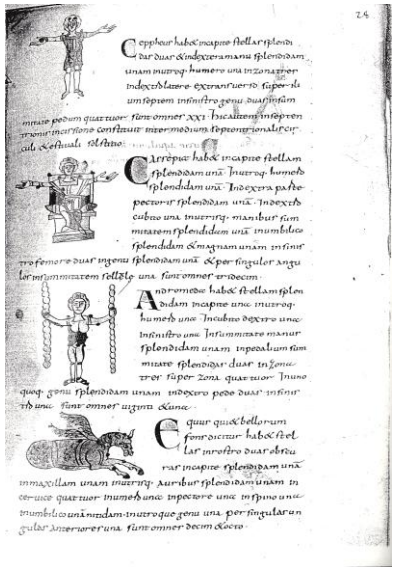 28
Ceppheus hab& incapite stellas splendi
das duas & indextera manu splendidam
unam inutroq. humero una inzona tres
indext latere extransuerso super
um septem insinistro genu duas insum
mitate pedum quattuor sunt omnes xxi. hic autem insepten
trionis incisione constituit inter medium septentrionalis cir
culi & estiuali solstitio
Cassepia hab& incapite stellam
splendidam una. Inutroq. humero
splendidam una. Indextra parte
pectoris splendidam una. Indext
cubito una inutrisq. manibus sum
mitatem splendidum una inumbilico
splendidam & magnam unam insinis
tro femore duas ingenu splendidam una & per singulos angu
los insummitatem selle una sunt omnes tridecim.
Andromede hab& stellam splen
didam incapite una inutroq.
humero una Incubito dextro una
insinistro una Insummitate manus
splendidam unam inpedalium sum
mitate splendidas duas inzona
tres super zona quattuor Inuno
quoq. genu splendidam unam indextro pede duas insinis
tro una sunt omnes viginti & una
Equus qui & bellorum
fons dicitur hab& stel
las inrostro duas obscu
ras incapite splendidam una
inmaxillam unam inutrisq. auribus splendidam unam in
ceruice quattuor inumero una inpectore una inspino una
inumbilico una nitidam inutroque genu una per singulas un
gulas anteriores una sunt omnes decim & octo.